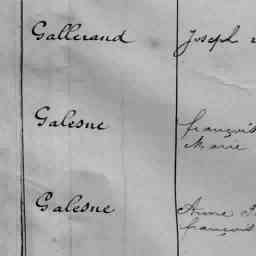 Gallerand Joseph
Galesne françois
Marie
Galesne Anne
françois